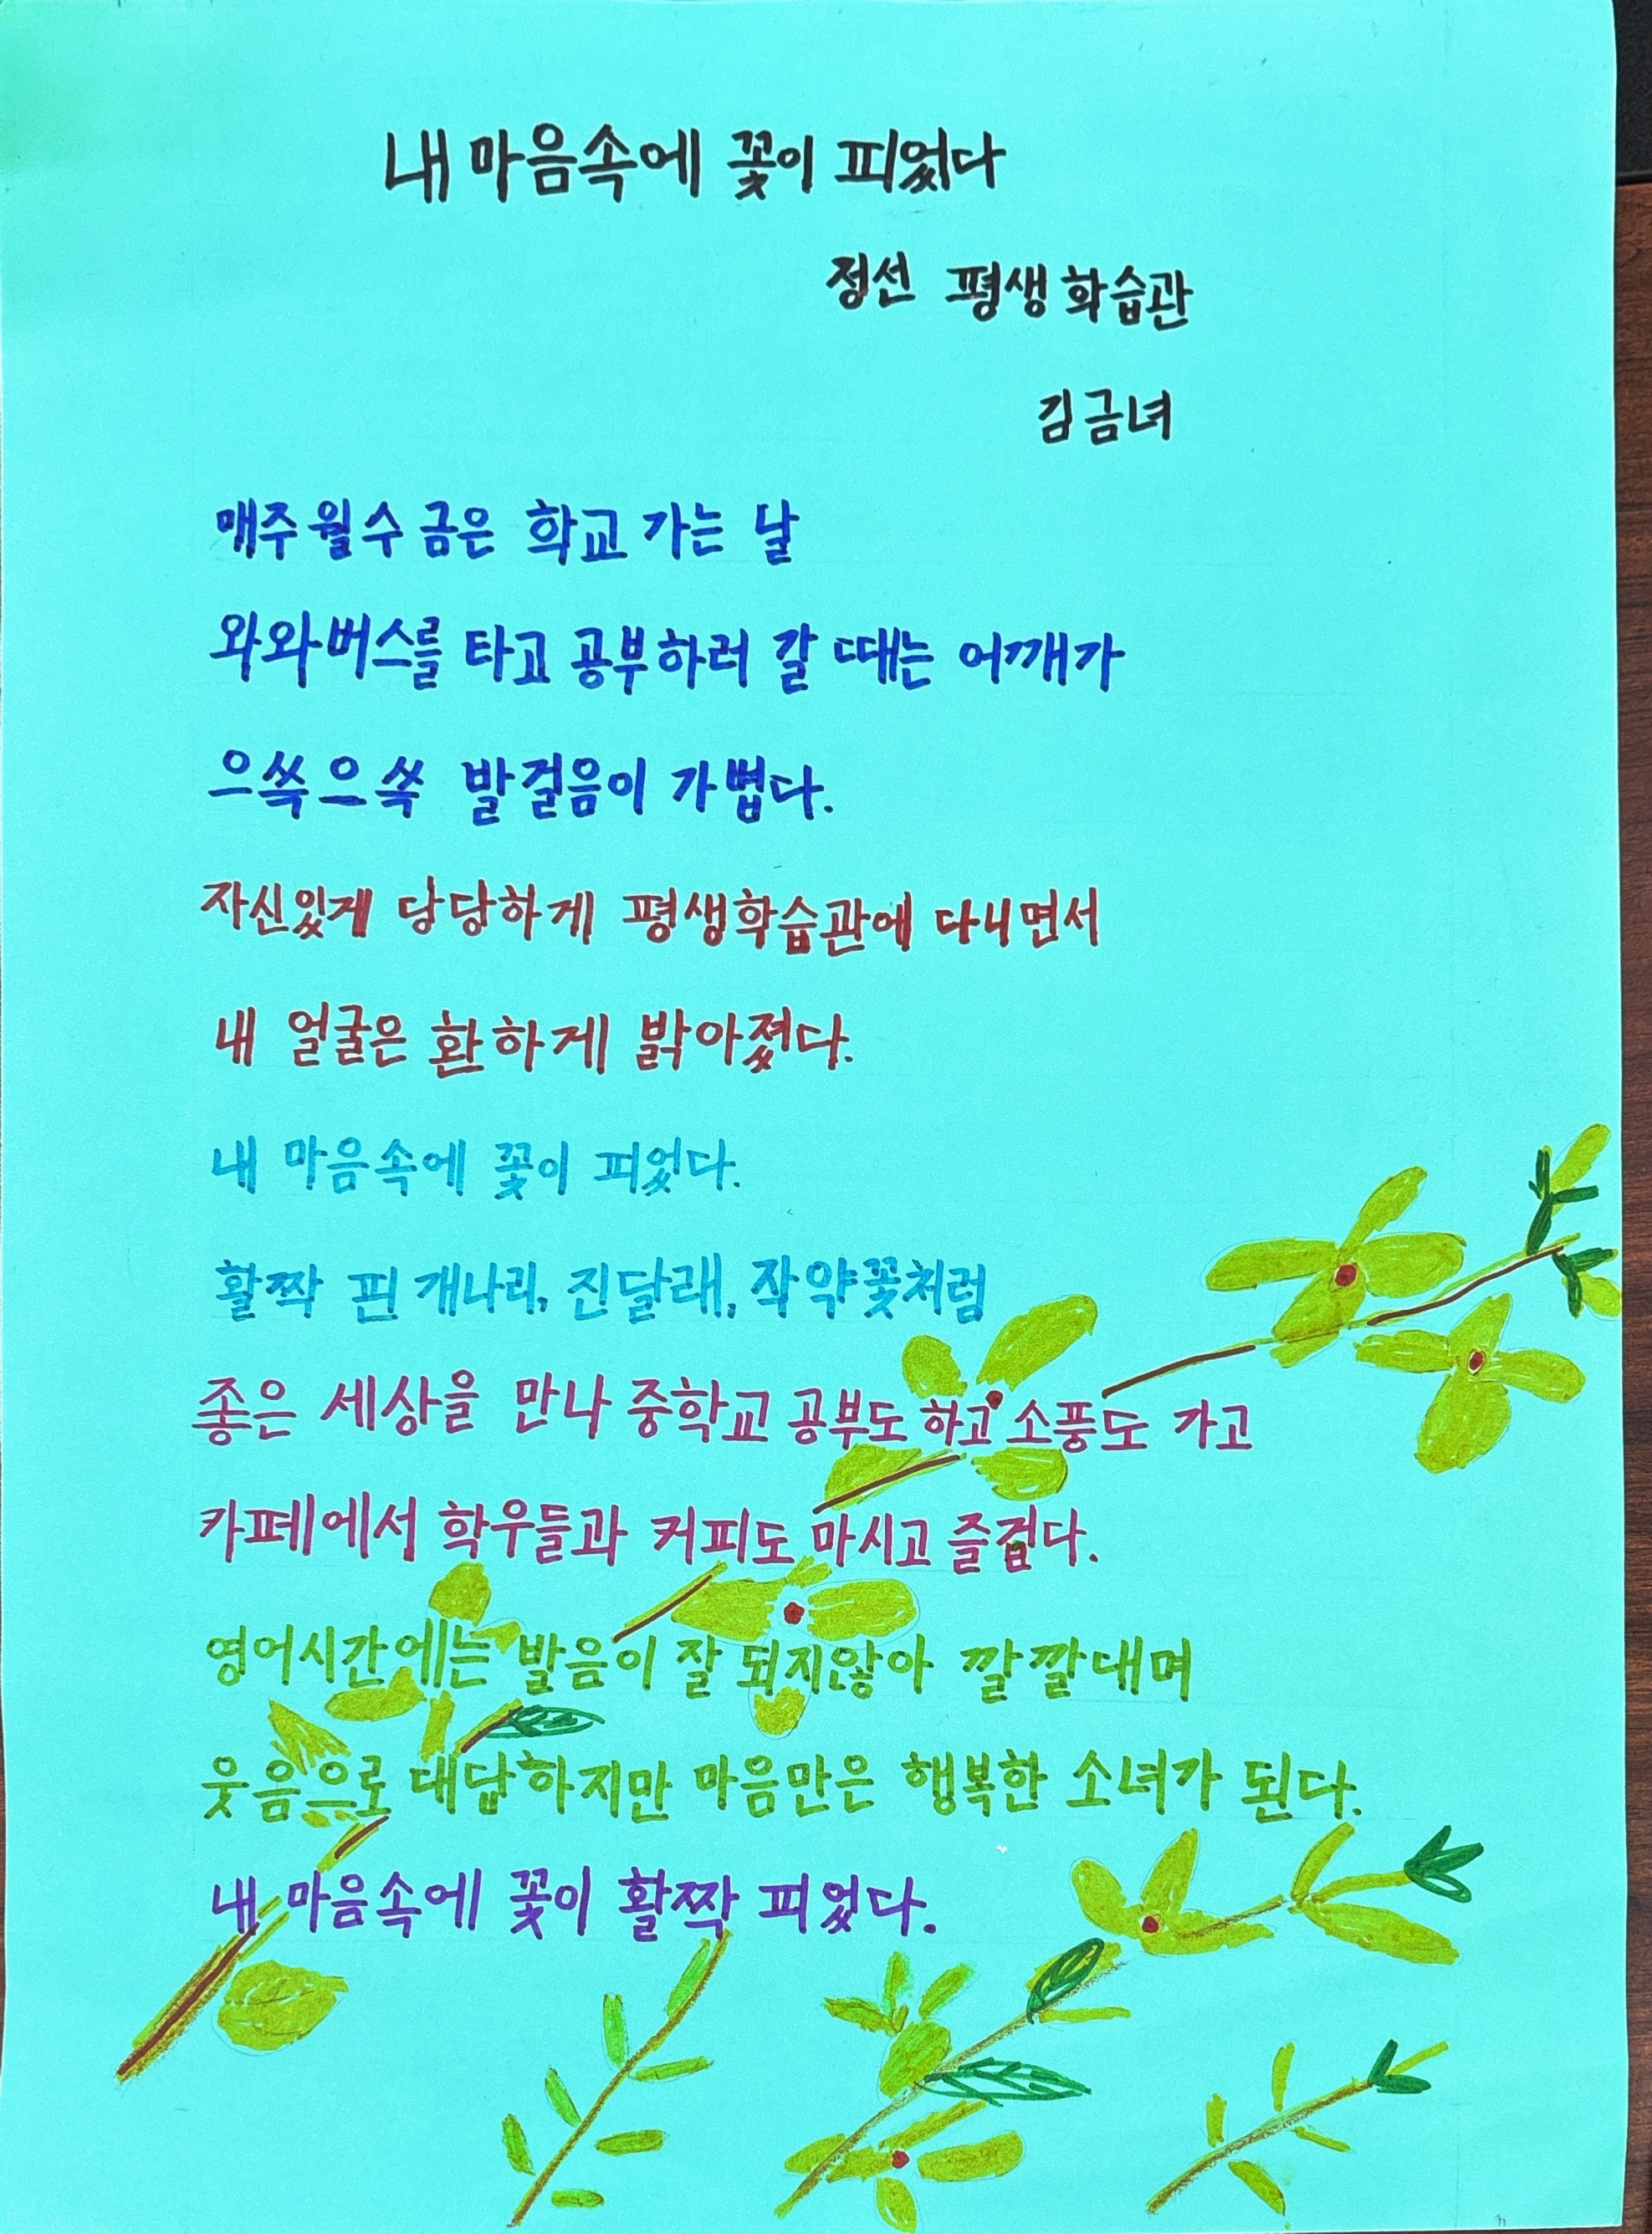 내 마음속에 꽃이 피었다
정선 평생 학습관
김금녀
매주 월 수 금은 학교 가는 날
와와버스를 타고 공부하러 갈 때는 어깨가
으쓱으쓱 발걸음이 가볍다.
자신있게 당당하게 평생학습관에 다니면서
내 얼굴은 환하게 밝아졌다.
내 마음속에 꽃이 피었다.
활짝 핀 개나리, 진달래, 작약꽃처럼
좋은 세상을 만나 중학교 공부도 하고 소풍도 가고
카페에서 학우들과 커피도 마시고 즐겁다.
영어시간에는 발음이 잘 되지않아 깔깔대며
웃음으로 대답하지만 마음만은 행복한 소녀가 된다.
내 마음속에 꽃이 활짝 피었다.